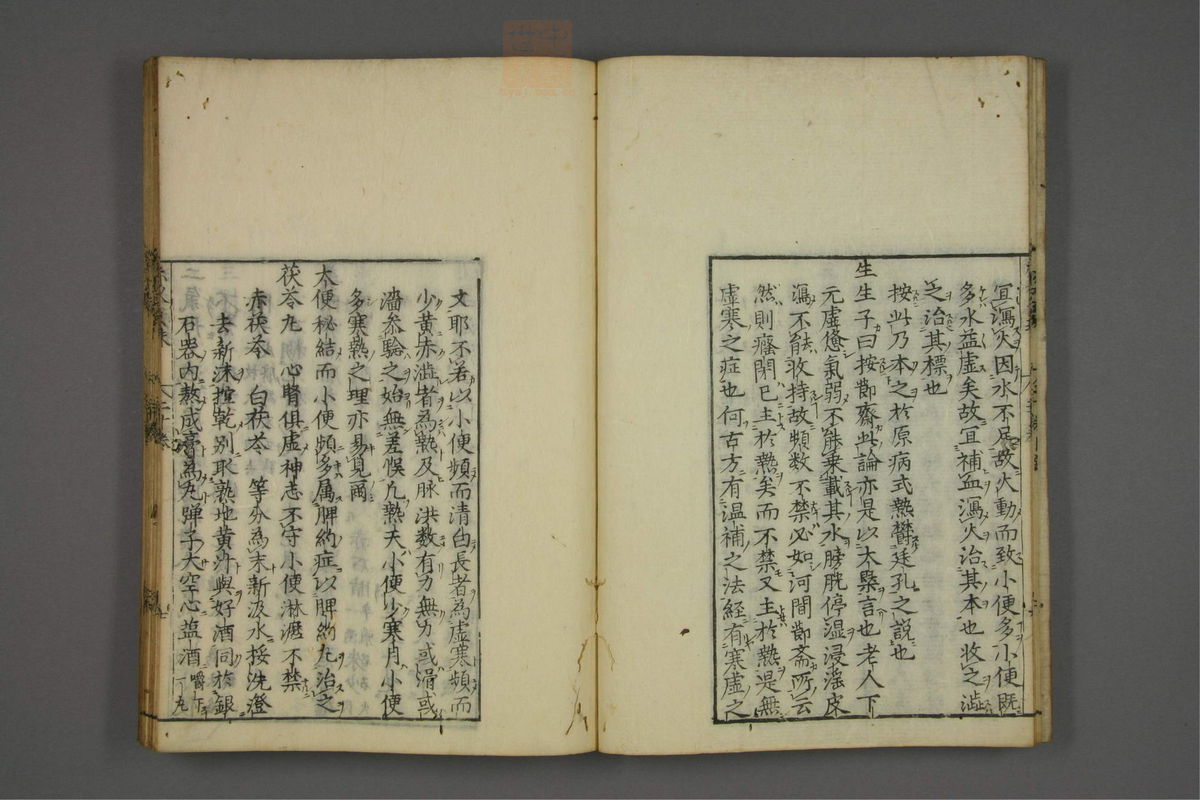 宜瀉火因水不足故火動而致小便多小便既
多水益虛矣故宜補血瀉火治其本也收之澁
之治其標也
按此乃本之於原病式熱鬱廷孔之說也
生生子曰按節齋此論亦是以大槩言也老人下
元虛憊氣弱不能乗載其水膀胱停湿浸滛皮
瀉不能收持故頻数不禁必如河間節斎所云
然則癃閉已主於熱矣而不禁又主於熱是無
虛寒之症也何古方有温補之法経有寒虛之
文耶不若以小便頻而清白長者為虛寒頻而
少黄赤澁者為熱及脉洪数有力無力或滑或
濇参驗之始無差悞凢熱天小便少寒月小便
多寒熱之理亦易見爾
大便秘結而小便頻多属脾約症以脾約丸治之
茯苓丸 心腎俱虛神志不守小便淋瀝不禁
赤茯苓 白茯苓 等分為末新汲水挼洗澄
去新沫控乾别取熟地黄汁與好酒同於銀
石器内熬成膏為丸弾子大空心盐酒嚼下一丸